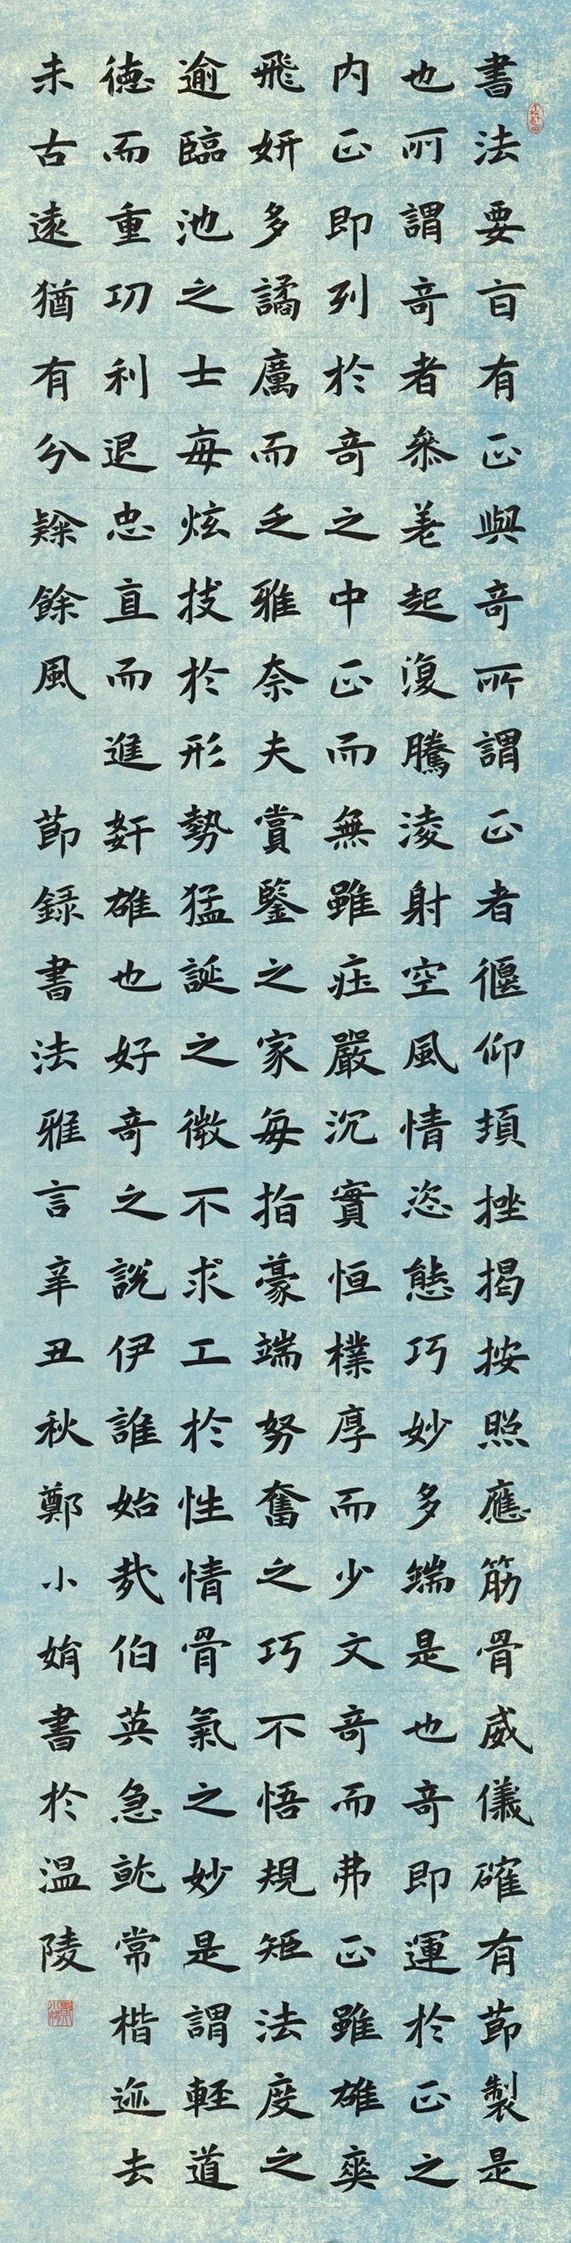 書法要旨有正與奇所謂正者偃仰頓挫揭按照應筋骨威儀確有節製是
也所謂奇者叅差起復騰淩射空風情恣態巧妙多端是也奇即運於正之
内正即列於奇之中正而無雖庄嚴沉實恒樸厚而少文奇而弗正雖雄爽
飛妍多譎厲而乏雅奈夫賞鑒之家每指毫端努奮之巧不悟規矩法度之
逾臨池之士每炫技於形勢猛誕之微不求工於性情骨氣之妙是謂輕道
德而重功利退忠直而進奸雄也好奇之説伊誰始㢤伯英急就常楷迹去
未古遠猶有兮隸餘風
節録書法雅言辛丑秋鄭小娋書於温陵